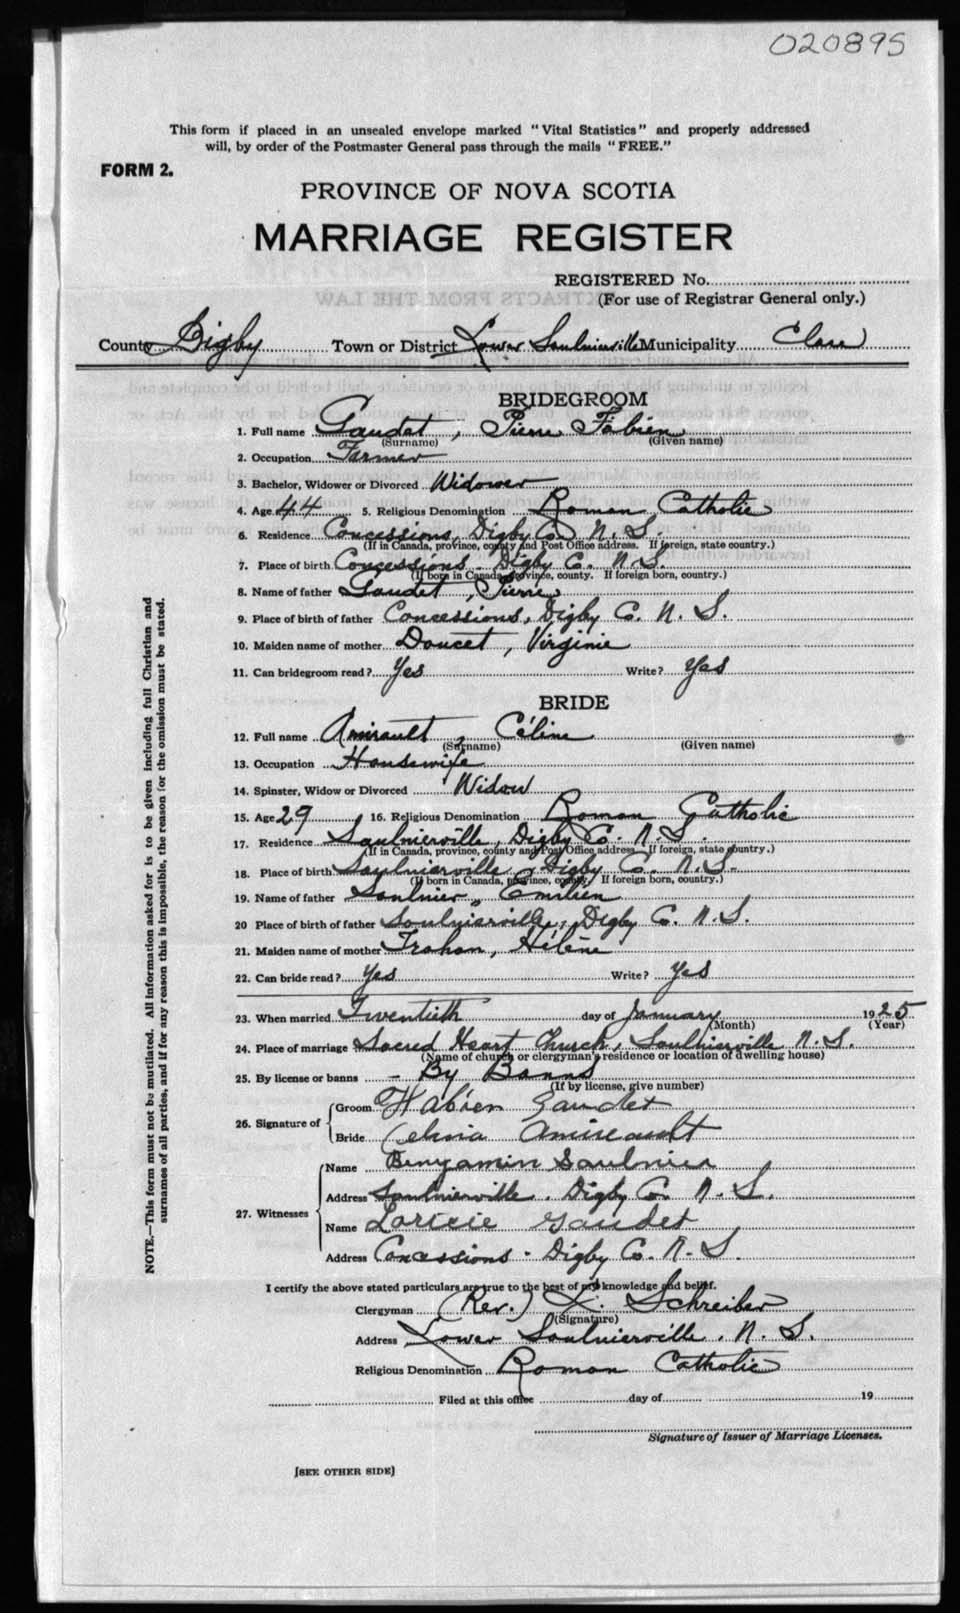 020895
This form if placed in an unsealed envelope marked "Vital Statistics" and properly addressed
will, by order of the Postmaster General pass through the mails "FREE."
FORM 2.
PROVINCE OF NOVA SCOTIA
MARRIAGE REGISTER
REGISTERED No.
(For use of Registrar General only.)
County Digby Town or District Lower Saulnierville Municipality Clare
BRIDEGROOM
1. Full name Gaudet, Pierre Fabien
(Surname) (Given name)
2. Occupation Farmer
3. Bachelor, Widower or Divorced Widower
4. Age 44 5. Religious Denomination Roman Catholic
6. Residence Concessions, Digby Co. N. S.
(If in Canada, province, county and Post Office address. If foreign, state country.)
7. Place of birth Concessions - Digby C. N. S.
(If born in Canada, province, county. If foreign born, country.)
8. Name of father Gaudet, Pierre
9. Place of birth of father Concessions, Digby C. N. S.
10. Maiden name of mother Doucet, Virginie
11. Can bridegroom read? Yes Write? Yes
BRIDE
12. Full name Amirault, Céline
(Surname) (Given name)
13. Occupation Housewife
14. Spinster, Widow or Divorced Widow
15. Age 29 16. Religious Denomination Roman Catholic
17. Residence Saulnierville, Digby Co. N. S.
(If in Canada, province, county and Post Office address. If foreign, state country.)
18. Place of birth Saulnierville, Digby C. N. S.
(If born in Canada, province, county. If foreign born, country.)
19. Name of father Saulnier, Emilien
20 Place of birth of father Saulnierville, Digby C. N. S.
21. Maiden name of mother Trahan, Hélène
22. Can bride read? Yes Write? Yes
23. When married Twentieth day of January 1925
(Month) (Year)
24. Place of marriage Sacred Heart Church, Saulnierville N. S.
(Name of church or clergyman's residence or location of dwelling house)
25. By license or banns - By Banns
(If by license, give number)
26. Signature of
Groom Fabien Gaudet
Bride Celinia Amireault
27. Witnesses
Name Benyamin Saulnier
Address Saulnierville. Digby Co. N. S.
Name Gaudet
Address Concessions - Digby C. N. S.
I certify the above stated particulars are true to the best of my knowledge and belief.
Clergyman (Rev.) Schreiber
(Signature)
Address Lower Saulnierville. N. S.
Religious Denomination Roman Catholic
Filed at this office day of 19
Signature of Issuer of Marriage Licenses.
[SEE OTHER SIDE]
NOTE.—This form must not be mutilated. All information asked for is to be given including full Christian and
surnames of all parties, and if for any reason this is impossible, the reason for the omission must be stated.